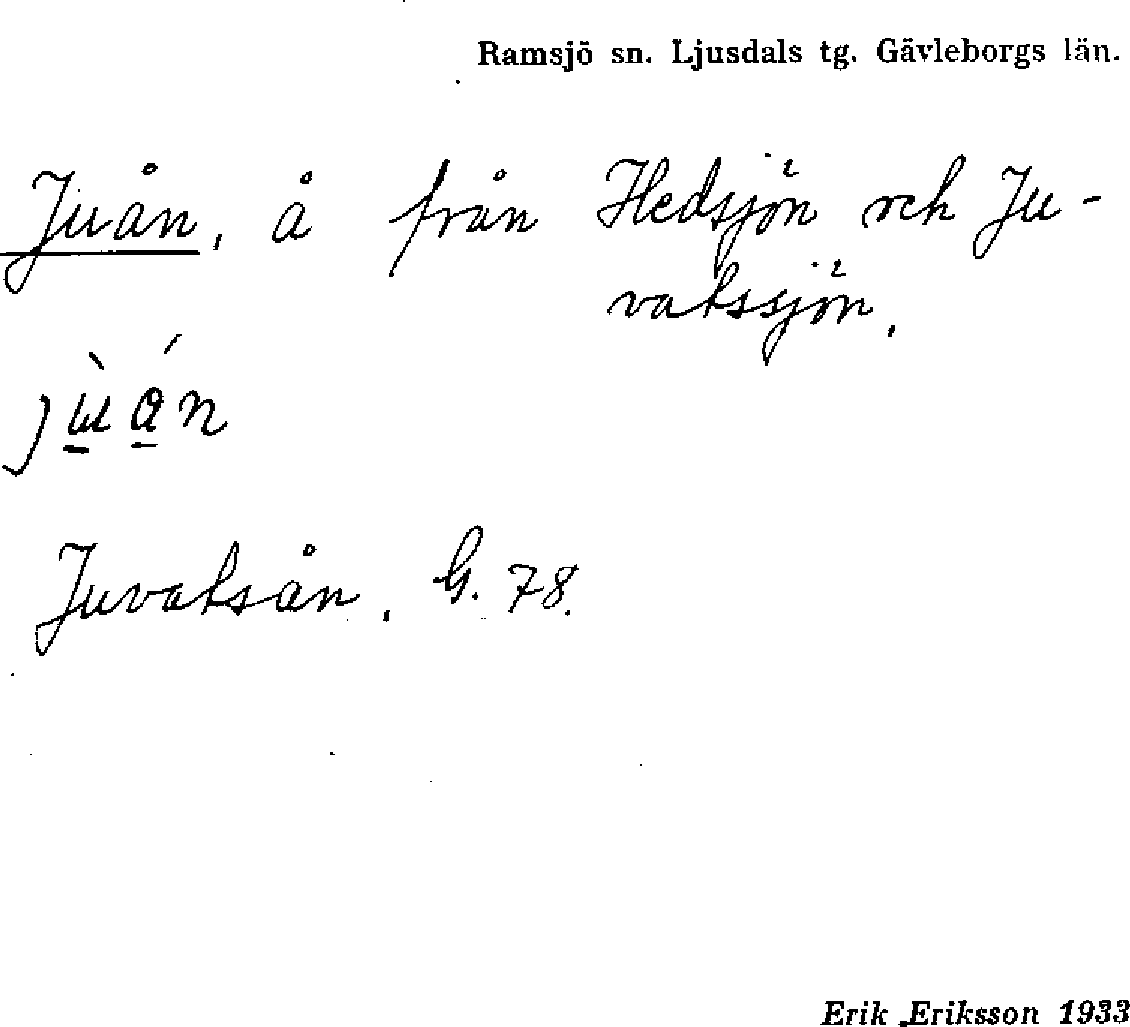 Ramsjö sn. Ljusdals tg. Gävleborgs län.
Juån, å från Hedsjön och Ju-
vatssjön.
jùα̊́n
Juvatsån, G. 78.
Erik Eriksson 1933